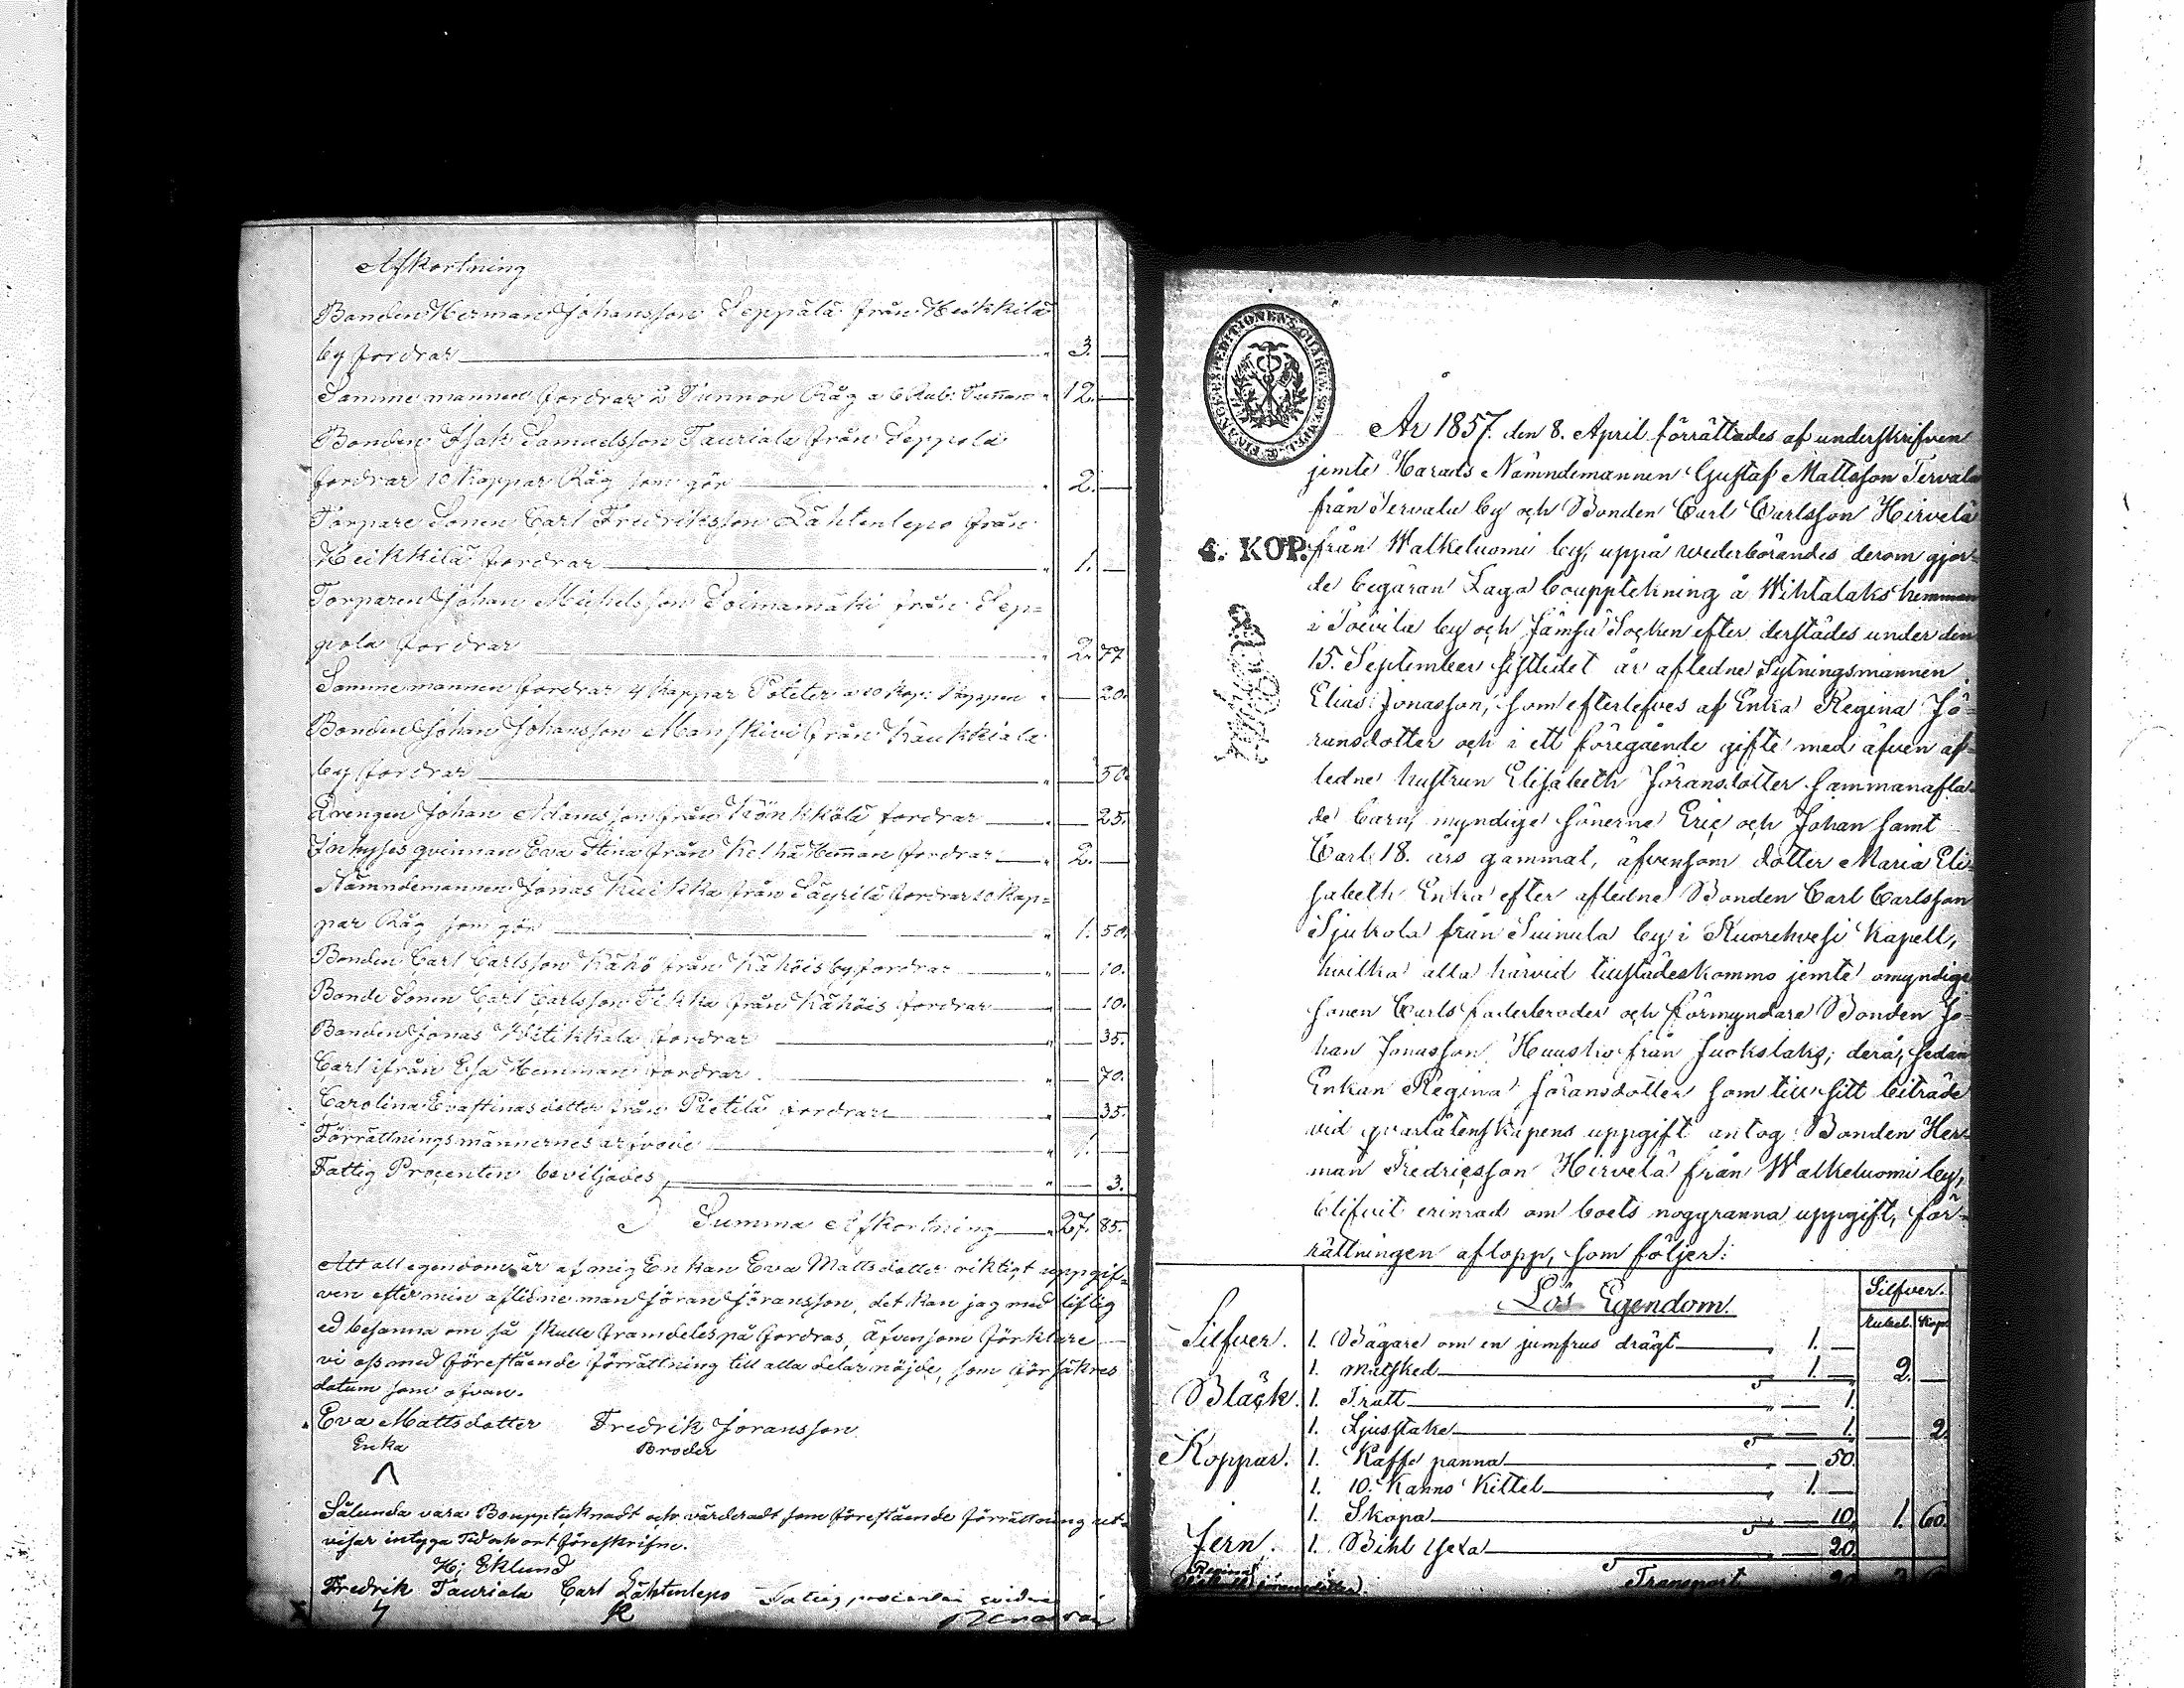 Afkortning
Bonden Herman Johansson Seppälä från Heikkilä
by fordrar " 3. —
Samme mannen fordrar 2 Tunnor Råg a 6 Rub: Tunnan " 12. —
Bonden Isak Samuelsson Tauriala från Seppola
fordrar 10 Kappar Råg som gör " 2. —
Torpare Sonen Carl Fredriksson Lähtenlepo från
Heikkilä fordrar " 1. —
Torparen Johan Michelsson Soimamäki från Sep=
pola fordrar " 2. 77
Samme mannen fordrar 4 Kappar Poteter a 10 Kop: Kappen " — 20.
Bonden Johan Johansson Manskivi från Kaukkiala
by fordrar " 50.
Drengen Johan Adamsson från Könkkölä fordrar " — 25.
Inhyses qvinnan Eva Stina från Kelhä Hemman fordrar " 2. —
Nämndemannen Jonas Kuikka från Säyrilä fordrar 10 Kap=
par Råg som gör " 1. 50.
Bonden Carl Carlsson Kähö från Kähöis by fordrar " — 10.
Bonde Sonen Carl Carlsson Tikka från Kähöis fordrar " — 10.
Bonden Jonas Witikkala fordrar " — 35.
Carl ifrån Esa Hemman fordrar " — 70.
Carolina Evastinas dotter från Pietilä fordrar " — 35.
Förrättnings männernes arfvode " 1. —
Fattig Procenten beviljades " — 3.
Summa Afkortning " 27. 85.
Att all egendom är af mig Enkan Eva Matts dotter riktigt uppgif=
ven efter min aflidne man Jöran Jöransson, det kan jag med liflig
ed besanna om så skulle framdeles på fordras, Äfvensom förklare
vi oss med förestående förrättning till alla delar nöjde, som försäkres
datum som ofvan.
Eva Mattsdotter Fredrik Joransson
Enka Broder
Sålunda vara Boupptecknadt och värderadt som förestående förrättning ut=
visar intyga Tid och ort föreskrifne.
H: Eklund
Fredrik Tauriala Carl Lähtenlepo Fattig procenten
FINANCE EXPEDITIONENS CHARTÆ SIGILL
4. KOP.
År 1857. den 8. April förrättades af underskrifven
jemte Harads Nämndemannen Gustaf Mattsson Tervala
från Tervala by och Bonden Carl Carlsson Hirvelä
från Walkeluomi by, uppå wederbörandes derom gjor-
de begäran Laga bouppteckning å Wihtalaks hemman
i Toivila by och Jämsä Socken efter derstädes under den
15. September sistledet år afledne Sytningsmannen
Elias Jonasson, som efterlefves af Enka Regina Jö-
ransdotter och i ett föregående gifte med äfven af-
ledne hustrun Elisabeth Jöransdotter sammanafla-
de barn, myndige sönerne Eric och Johan samt
Carl 18. års gammal, äfvensom dotter Maria Eli-
sabeth Enka efter afledne Bonden Carl Carlsson
Sjukola från Suinula by i Kuorehvesi Kapell,
hvilka alla härvid tillstädeskommo jemte omyndige
sonen Carls faderbroder och förmyndare Bonden Jo-
han Jonasson Huusko från Juokslaks; derå, sedan
Enkan Regina Jöransdotter som till sitt biträde
vid qvarlåtenskapens uppgift antog Bonden Her-
man Fredricsson Hirvelä från Walkeluomi by,
blifvit erinrad om boets noggranna uppgift, för-
rättningen aflopp, som följer:
Lös Egendom. Silfver.
Rubel. Kop
Silfver. 1. Bägare om en jumfrus drägt " 1. —
1. Matsked " 1. — 2. —
Bläck. 1. Tratt " — 1.
1. Ljusstake " — 1. — 2.
Koppar. 1. Kaffe panna " — 50.
1. 10. Kanno Kittel " 1. —
1. Skopa " — 10. 1. 60.
Jern. 1. Bihl yxa " — 20.
Transport 20.